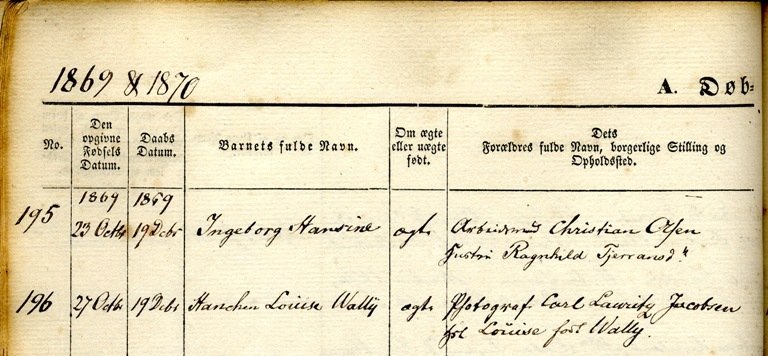 1869 & 1870
A. Døb=
No.
Den opgivne Fødsels Datum.
Daabs Datum.
Barnets fulde Navn.
Om ægte eller uægte født.
Dets Forældres fulde Navn, borgerlige Stilling og Opholdssted.
1869 1869
195 23 Octbr 19 Dcbr Ingeborg Hansine ægte Arbeidsmd Christian Olsen
Hustru Ragnhild Tjerransd"
196 27 Octbr 19 Dcbr Hanchen Louise Wally ægte Photograf Carl Lauritz Jacobsen
Louise født Wally.